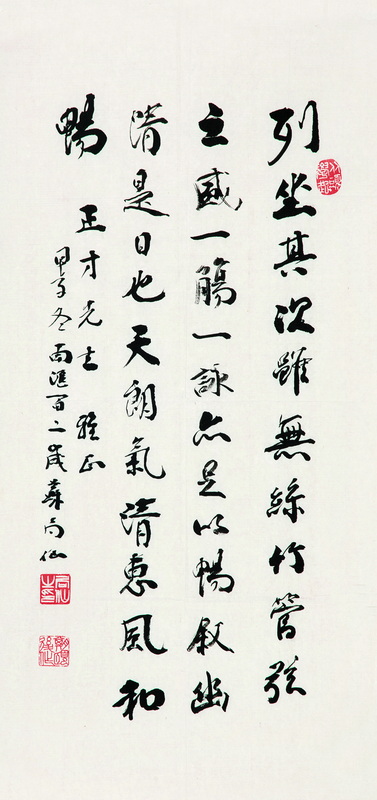 列坐其次雖無絲竹管弦
之盛一觴一詠亦足以暢叙幽
情是日也天朗氣清惠風和
暢
正才先生 雅正
甲子冬南匯百二歲蘇局仙